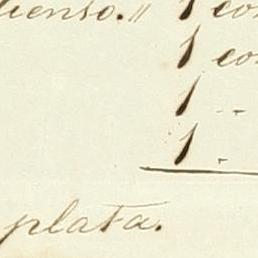 ienso.〃 1 co
1 co
1 --
1 -
plata.